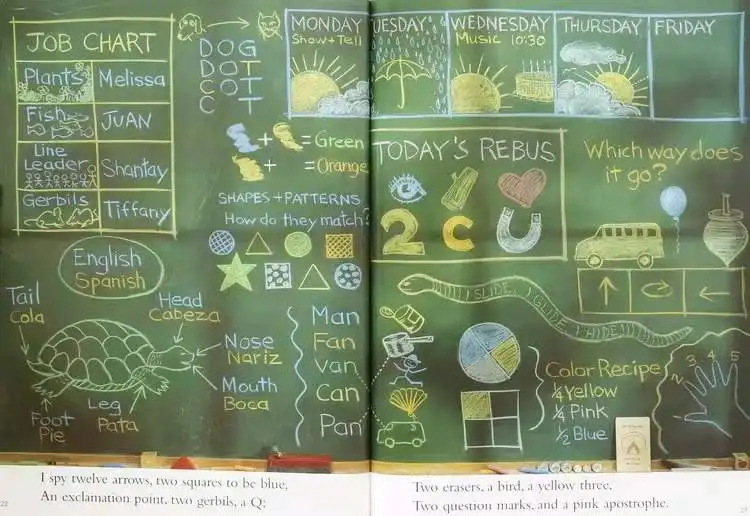 JOB CHART
Plants Melissa
Fish JUAN
Line
Leader Shantay
Gerbils Tiffany
DOG
DOT
COT
C T
+ = Green
+ = Orange
SHAPES + PATTERNS
How do they match?
English
Spanish
Tail
Cola
Head
Cabeza
Nose
Nariz
Mouth
Boca
Leg
Pata
Foot
Pie
Man
Fan
Van
Can
Pan
I spy twelve arrows, two squares to be blue,
An exclamation point, two gerbils, a Q;
22
MONDAY
Show + Tell
TUESDAY
WEDNESDAY
Music 10:30
THURSDAY
FRIDAY
TODAY'S REBUS
2 C U
Which way does
it go?
I SLIDE, I GLIDE, I HIDE!!!!
Color Recipe
1/4 Yellow
1/4 Pink
1/2 Blue
2 3 4 5
Two erasers, a bird, a yellow three,
Two question marks, and a pink apostrophe.